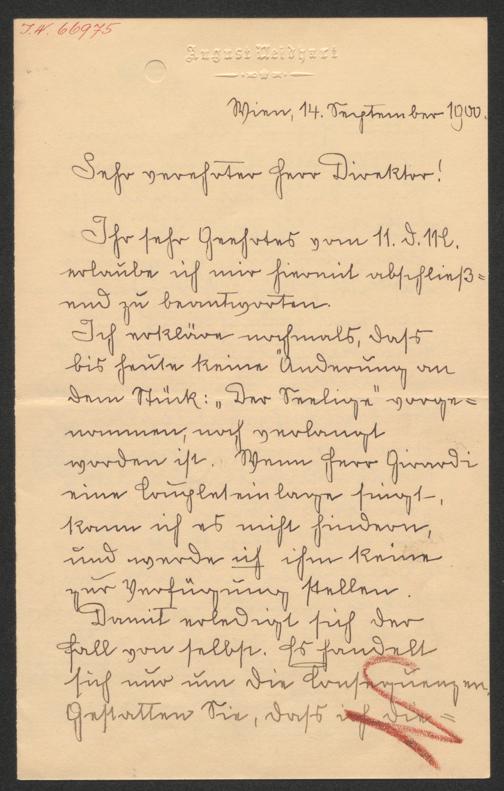 I.N. 66975
August Neidhart
Wien, 14. September 1900.
Sehr verehrter Herr Direktor!
Ihr sehr Geehrtes vom 11. d. M.
erlaube ich mir hiermit abschließ=
end zu beantworten.
Ich erkläre nochmals, dass
bis heute keine Änderung an
dem Stück: „Der Seelige" vorge=
nommen, noch verlangt
worden ist. Wenn Herr Girardi
eine Coupleteinlage singt,
kann ich es nicht hindern,
und werde ich ihm keine
zur Verfügung stellen.
Damit erledigt sich der
Fall von selbst. Es handelt
sich nur um die Consequenzen.
Gestatten Sie, dass ich die=